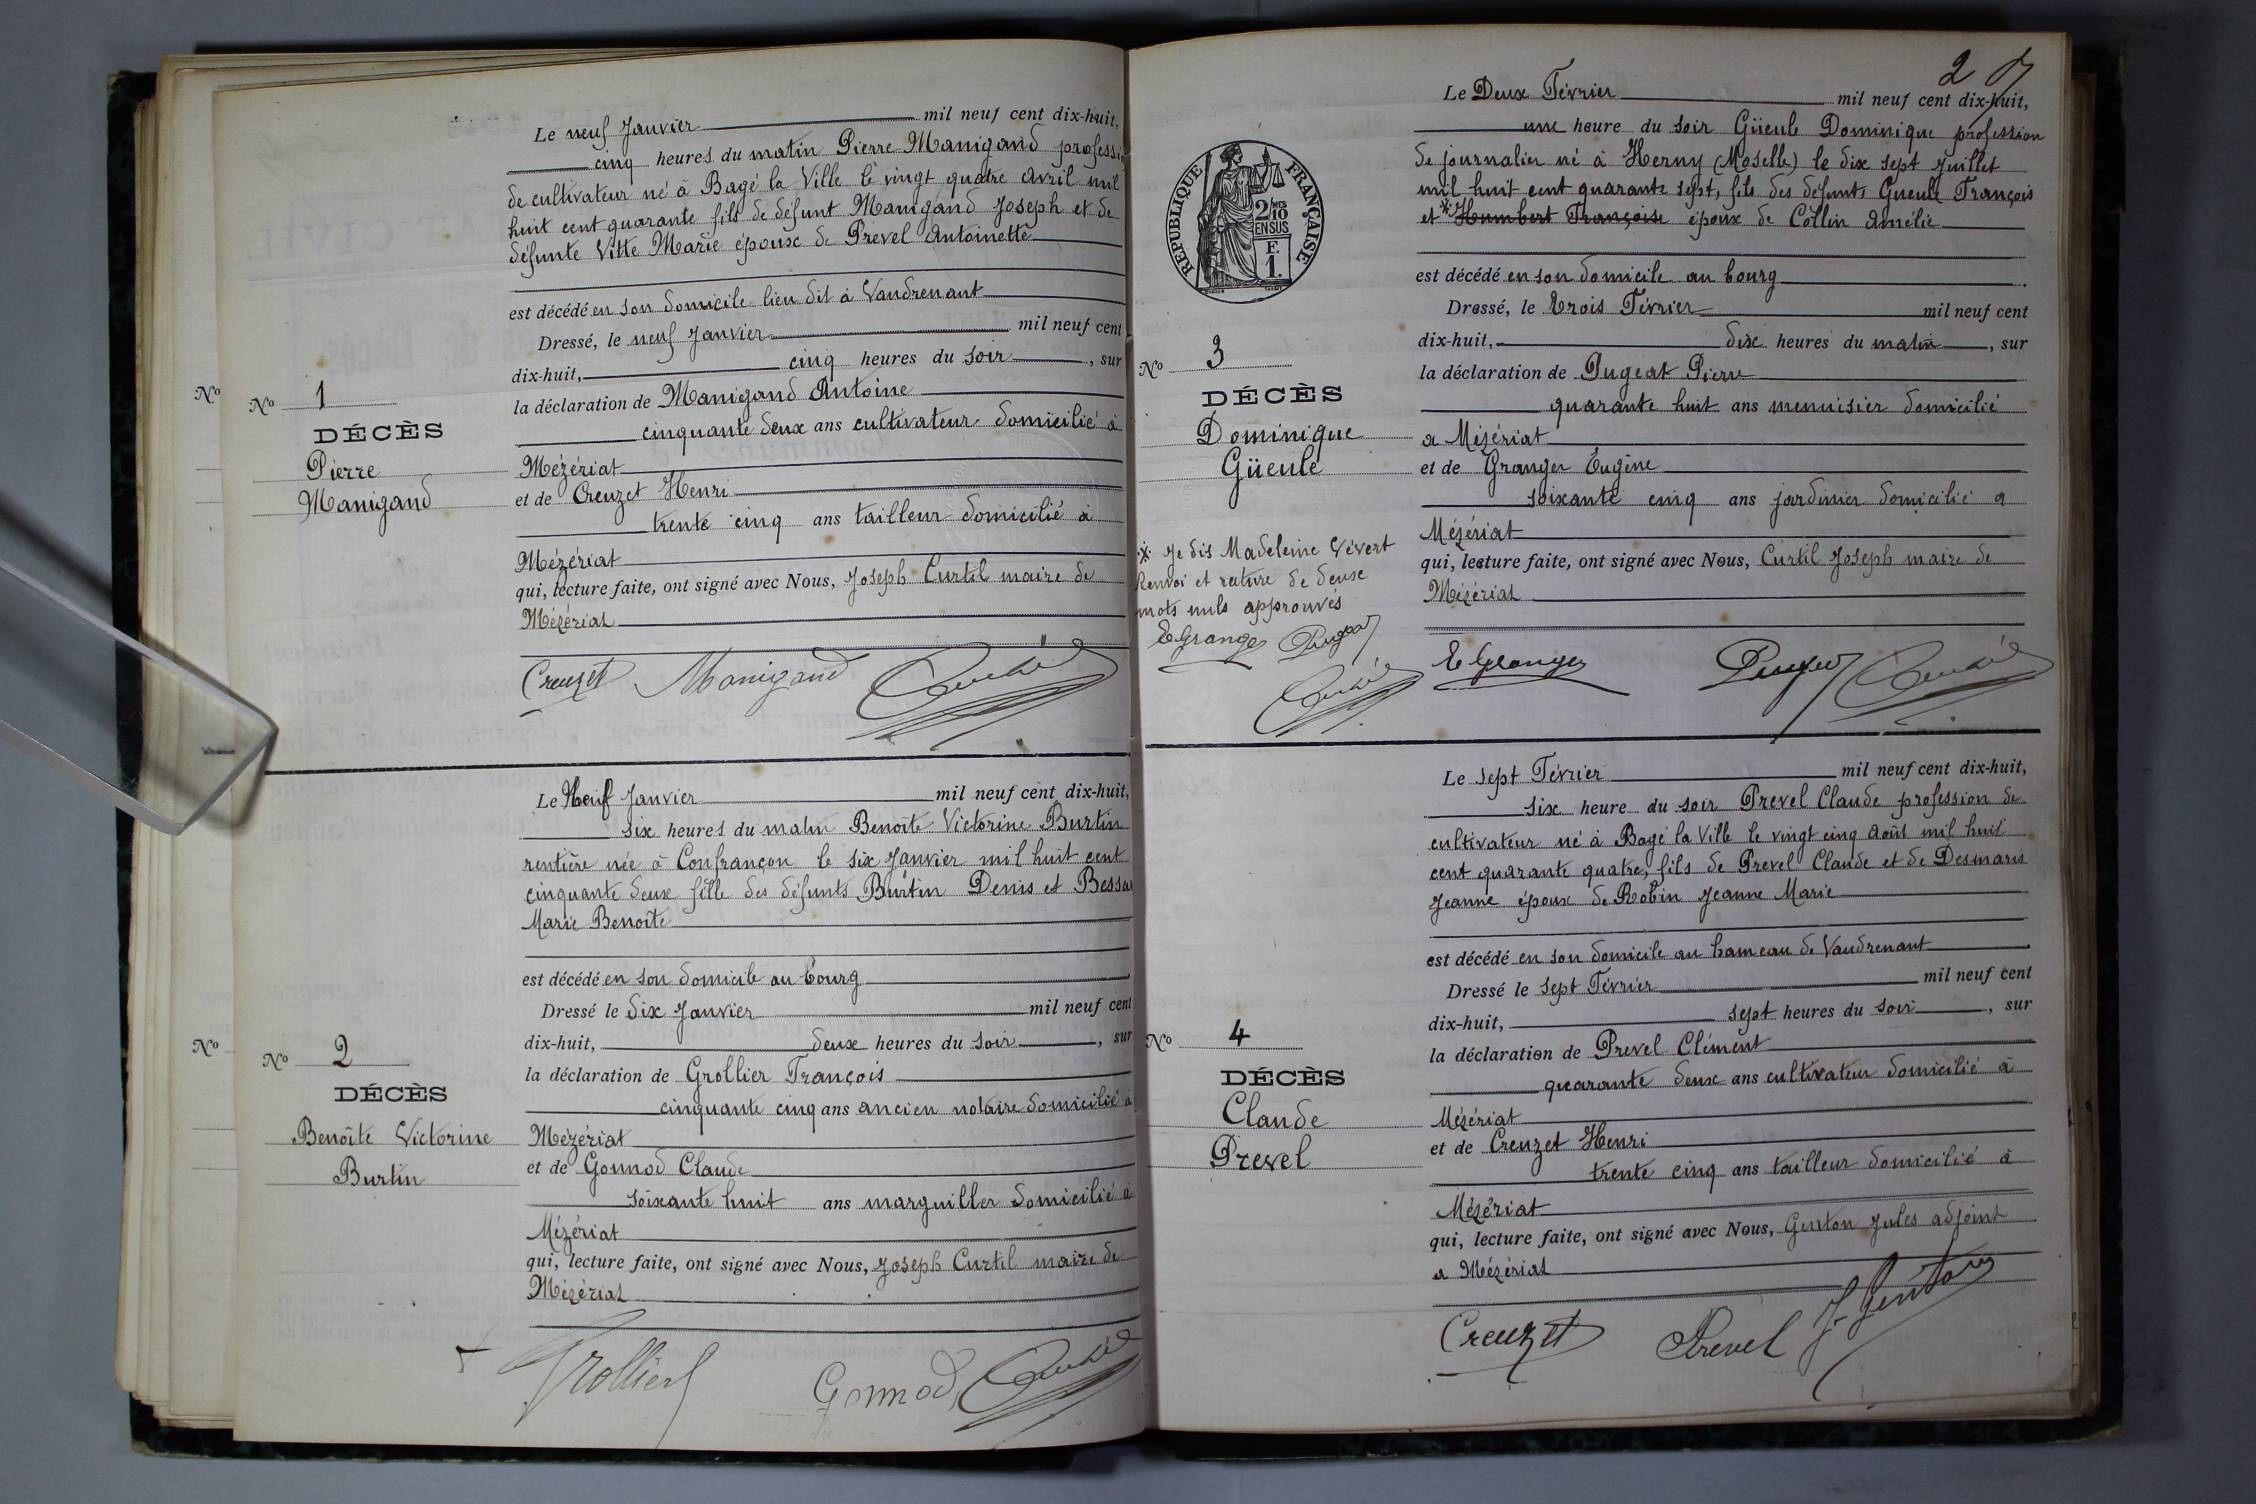 Le neuf Janvier mil neuf cent dix-huit,
cinq heures du matin Pierre Manigand profession
de cultivateur né à Bagé la Ville le vingt quatre avril mil
huit cent quarante fils de défunt Manigand Joseph et de
défunte Vitte Marie époux de Prevel Antoinette
est décédé en son domicile lieu dit à Vaudrenant
Dressé, le neuf Janvier mil neuf cent
dix-huit, cinq heures du soir, sur
la déclaration de Manigand Antoine
cinquante deux ans cultivateur domicilié à
Mézériat
et de Creuzet Henri
trente cinq ans tailleur domicilié à
Mézériat
qui, lecture faite, ont signé avec Nous, Joseph Curtil maire de
Mézériat
Creuzet Manigand Curtil
No
No 1
DÉCÈS
Pierre
Manigand
Le Neuf Janvier mil neuf cent dix-huit,
six heures du matin Benoîte Victorine Burtin
rentière née à Confrançon le six Janvier mil huit cent
cinquante deux fille des défunts Burtin Denis et Bessa
Marie Benoîte
est décédé en son domicile au bourg
Dressé le dix Janvier mil neuf cent
dix-huit, deux heures du soir, sur
la déclaration de Grollier François
cinquante cinq ans ancien notaire domicilié à
Mézériat
et de Gonnod Claude
soixante huit ans marguiller domicilié à
Mézériat
qui, lecture faite, ont signé avec Nous, Joseph Curtil maire de
Mézériat
Grollier Gonnod Curtil
No
No 2
DÉCÈS
Benoîte Victorine
Burtin
2
Le Deux Février mil neuf cent dix-huit,
une heure du soir Güeule Dominique profession
de journalier né à Herny (Moselle) le dix sept Juillet
mil huit cent quarante sept, fils des défunts Gueule François
et * Humbert Françoise époux de Collin Amélie
est décédé en son domicile au bourg
Dressé, le trois Février mil neuf cent
dix-huit, dix heures du matin, sur
la déclaration de Pugeat Pierre
quarante huit ans menuisier domicilié
a Mézériat
et de Granger Eugène
soixante cinq ans jardinier domicilié a
Mézériat
qui, lecture faite, ont signé avec Nous, Curtil Joseph maire de
Mézériat
E Granger Pugeat Curtil
REPUBLIQUE FRANÇAISE
2/10 MES
EN SUS
F.
1.
No 3
DÉCÈS
Dominique
Güeule
* Je dis Madeleine Vévert
Renvoi et rature de deux
mots nuls approuvés
E Granger Pugeat
Curtil
Le sept Février mil neuf cent dix-huit,
six heure du soir Prevel Claude profession de
cultivateur né à Bagé la Ville le vingt cinq Août mil huit
cent quarante quatre, fils de Prevel Claude et de Desmaris
Jeanne époux de Robin Jeanne Marie
est décédé en son domicile au hameau de Vaudrenant
Dressé le sept Février mil neuf cent
dix-huit, sept heures du soir, sur
la déclaration de Prevel Clément
quarante deux ans cultivateur domicilié à
Mézériat
et de Creuzet Henri
trente cinq ans tailleur domicilié à
Mézériat
qui, lecture faite, ont signé avec Nous, Genton Jules adjoint
a Mézériat
Creuzet Prevel J. Genton
No 4
DÉCÈS
Claude
Prevel